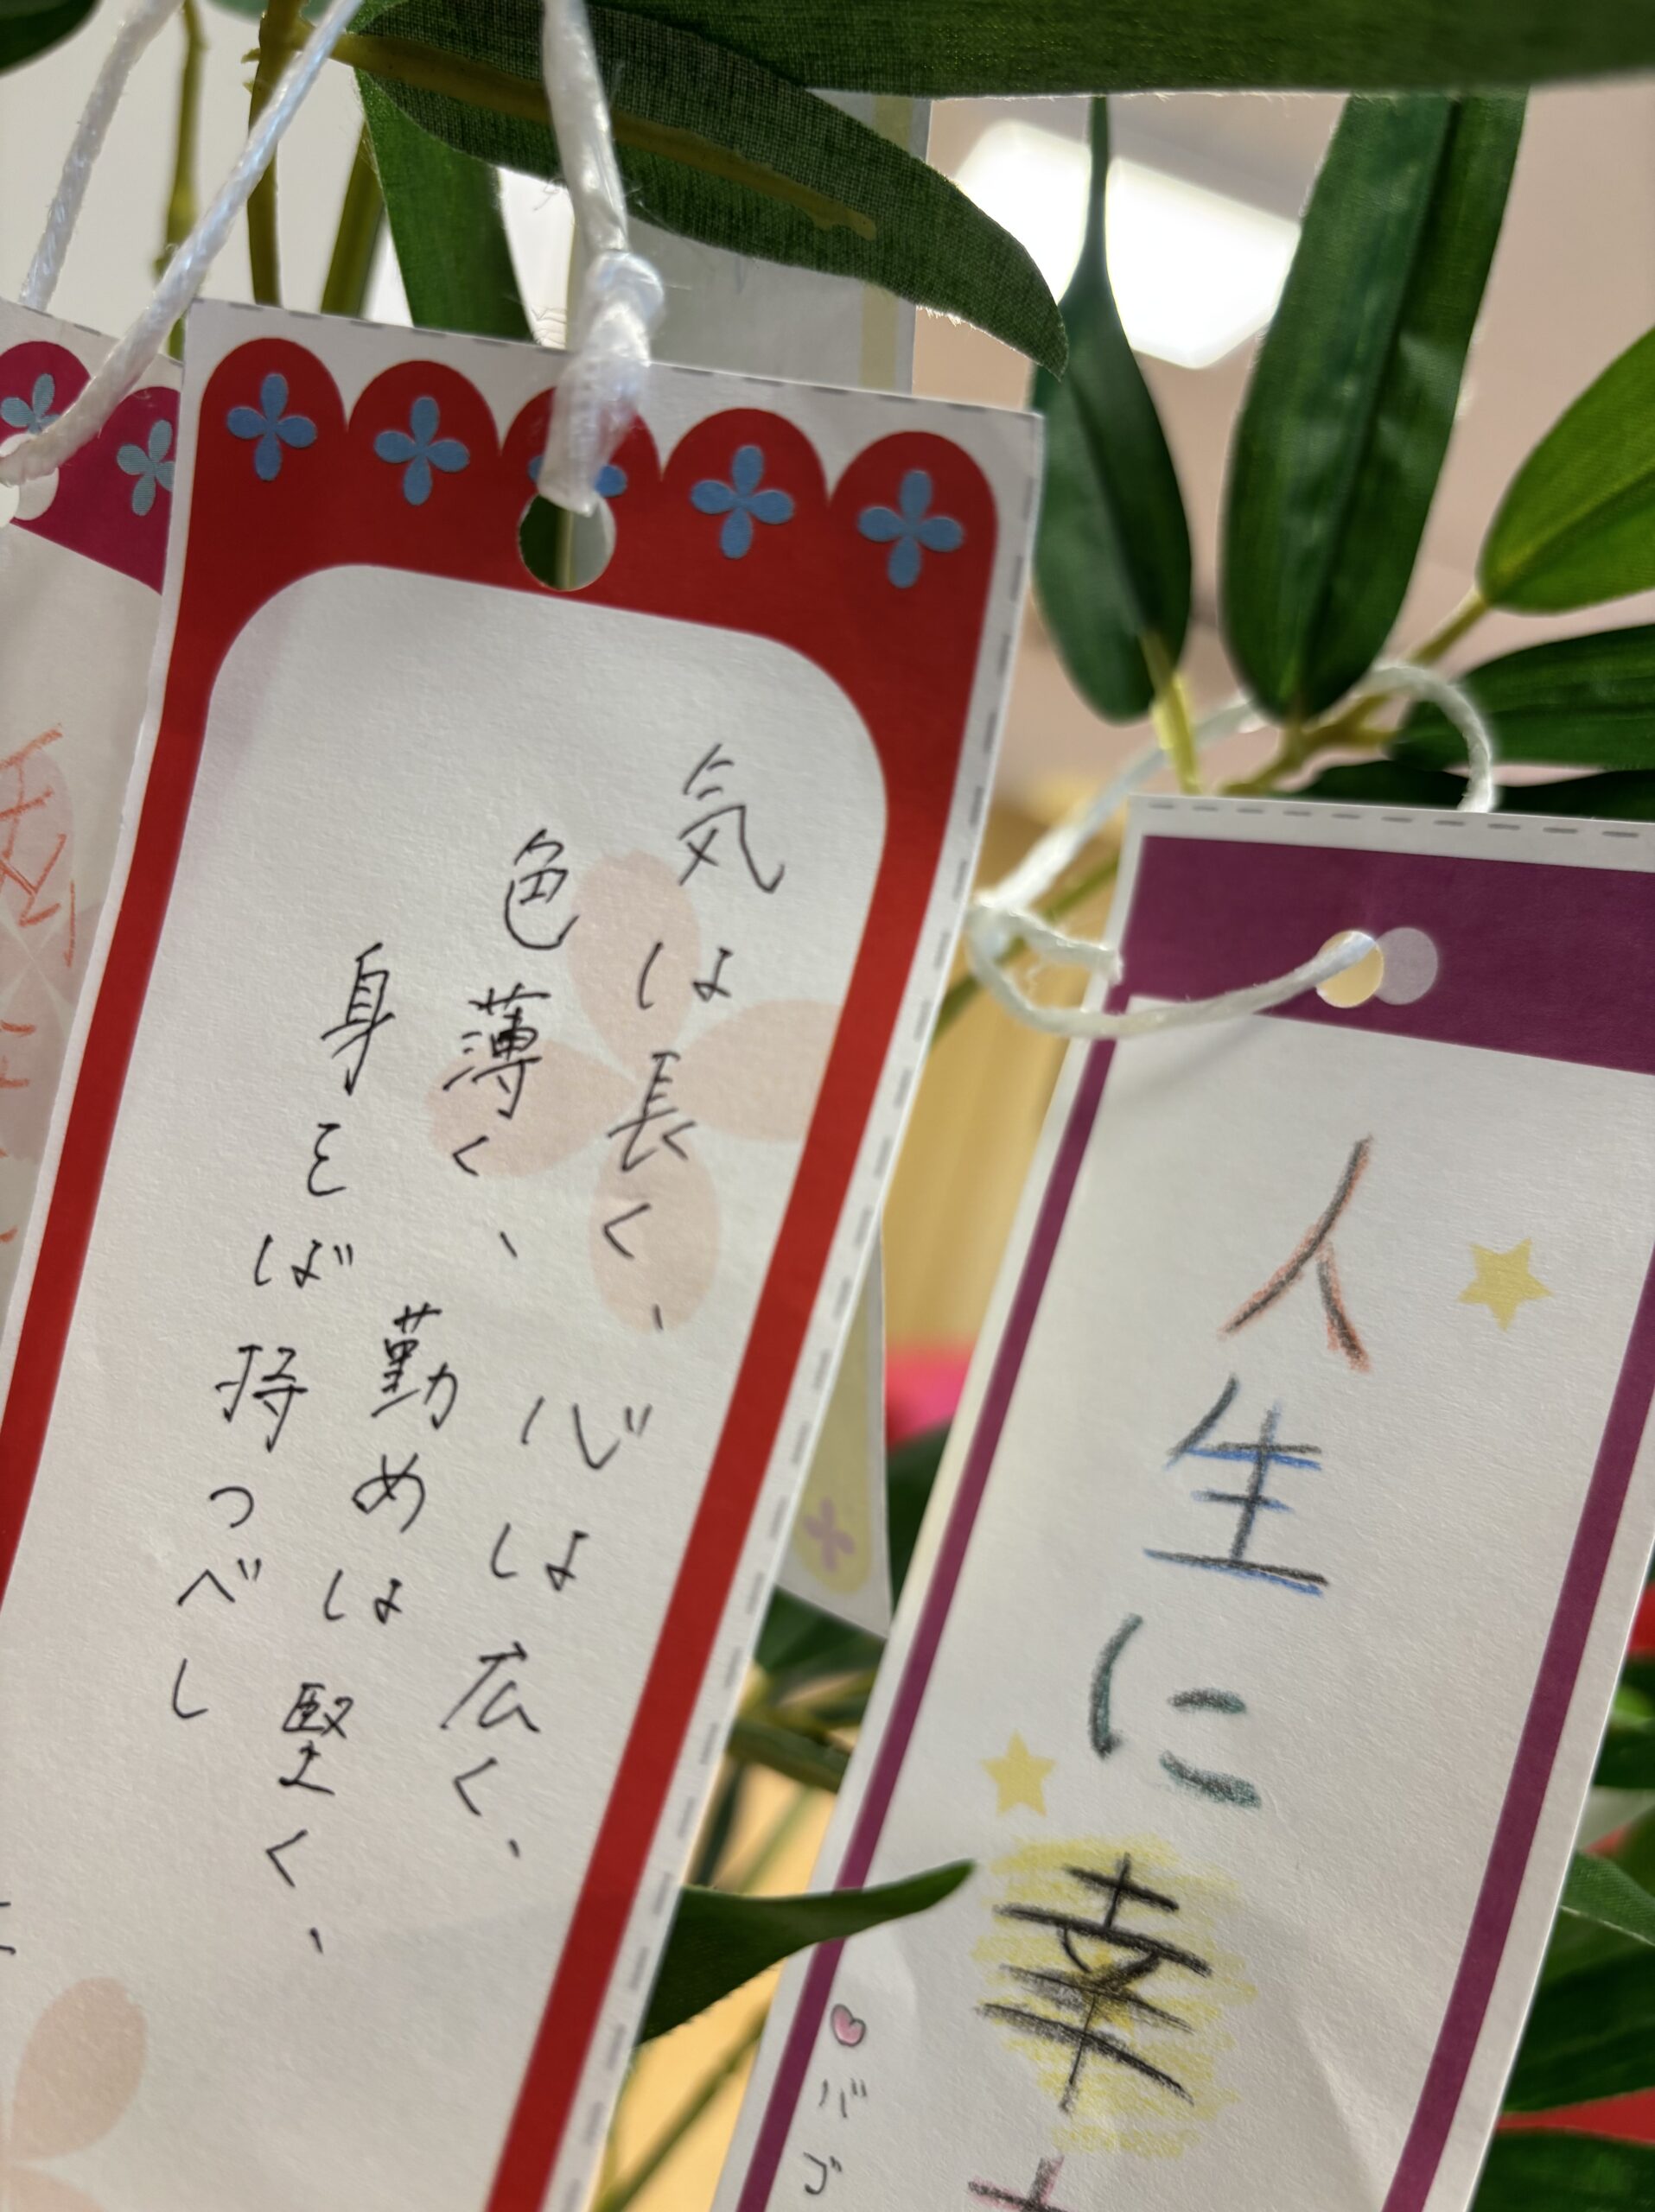 気は長く、心は広く、
色薄く、勤めは堅く、
身をば持つべし
人生に幸
バゴ